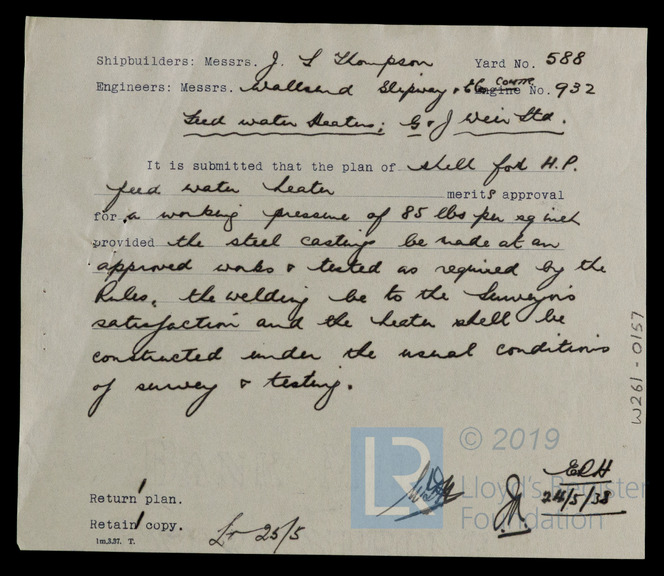 Shipbuilders: Messrs. J. L Thompson Yard No. 588
Engineers: Messrs. Wallsend Slipway & Co Contr Engine No. 932
Feed water Heaters; G & J Weir Ltd.
It is submitted that the plan of shell for H.P.
feed water heater merits approval
for a working pressure of 85 lbs per sq inch
provided the steel casting be made at an
approved works & tested as required by the
Rules, the welding be to the Surveyors
satisfaction and the heater shell be
constructed under the usual conditions
of survey & testing.
W261-0157
© 2019
LR
Lloyd's Register
Foundation
ERH
24/5/38
Return 1 plan.
Retain 1 copy.
Lr 25/5
1m,3.37. T.